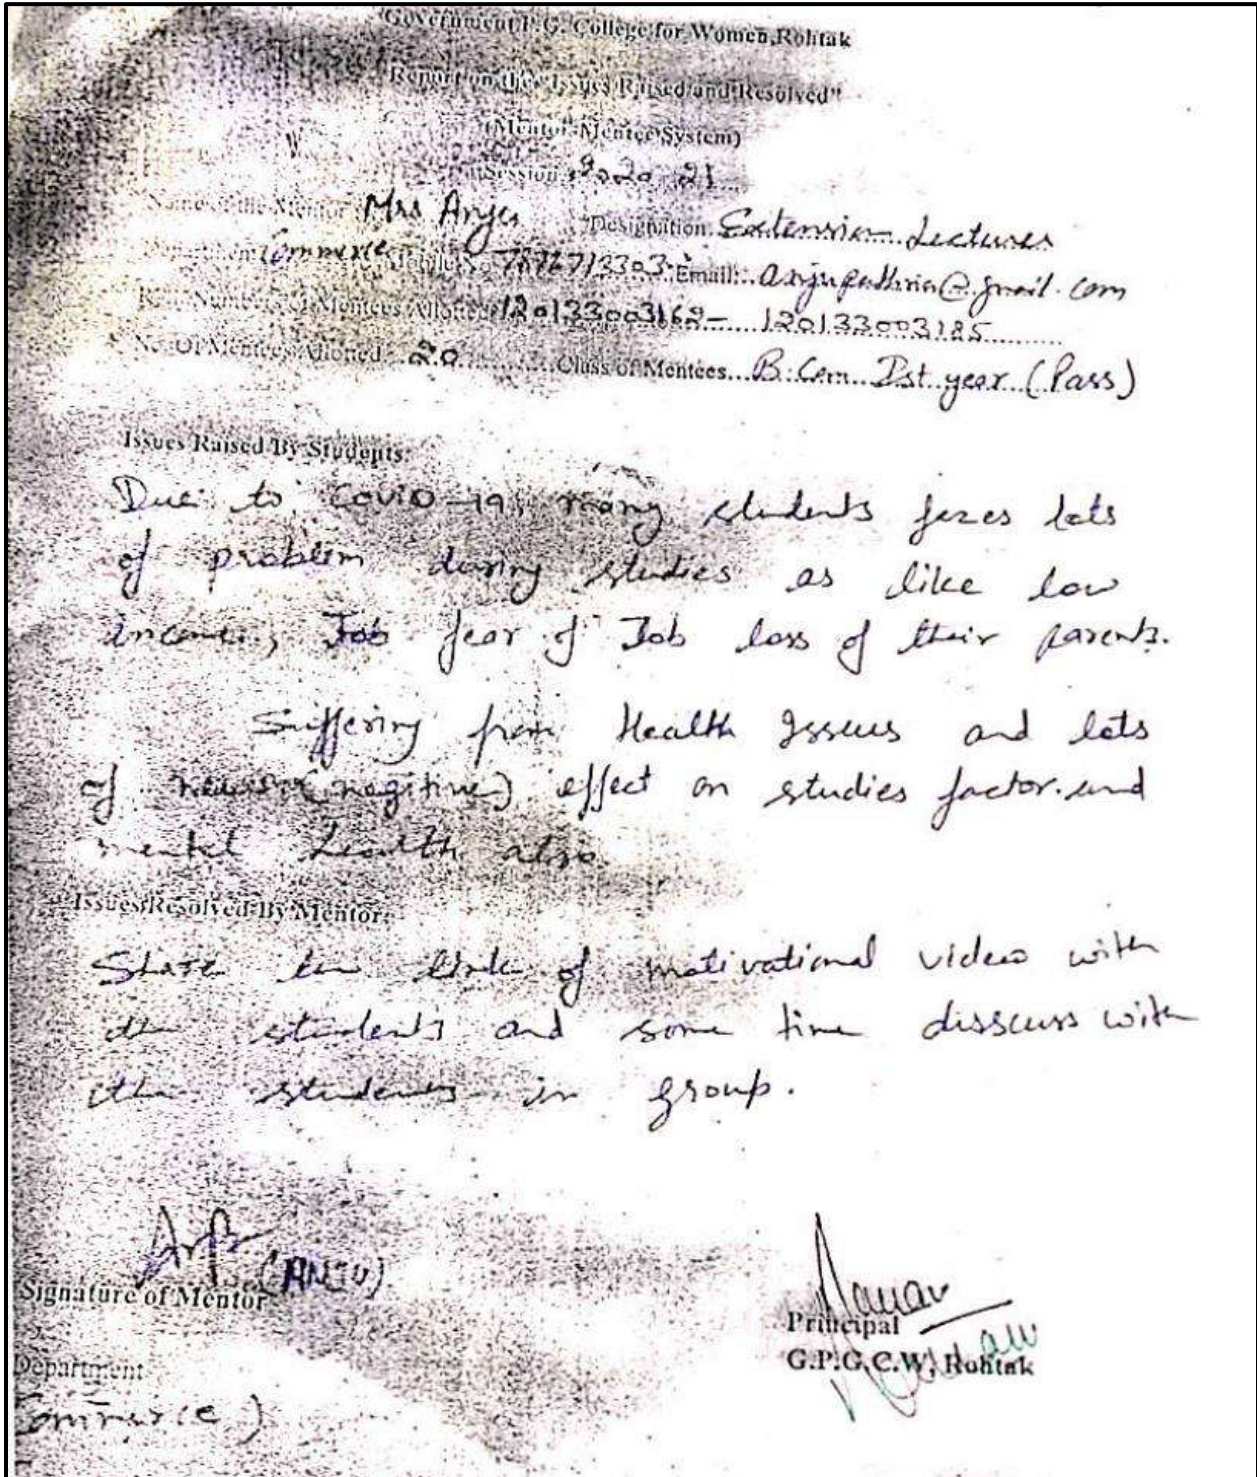 Government P.G. College for Women, Rohtak
Report on the "Issues Raised and Resolved"
(Mentor-Mentee System)
Session 2020-21
Name of the Mentor Mrs Anju Designation Extension Lecturer
Commerce Mobile No. Email: @gmail.com
Roll Number Of Mentees Allotted 120133003169- 120133003185
No. Of Mentees Allotted 20 Class of Mentees B.Com Ist year (Pass)
Issues Raised By Students:
Due to Covid-19, many students fezes lots
of problem during studies as like low
income, Job fear of Job loss of their parents.
Suffering from Health Issues and lots
of (negitive) effect on studies factor and
mental health also
Issues Resolved By Mentor:
Share link of motivational video with
the students and some time disscuss with
the students in group.
(ANJU)
Signature of Mentor
Principal
G.P.G.C.W, Rohtak
Department
Commerce)